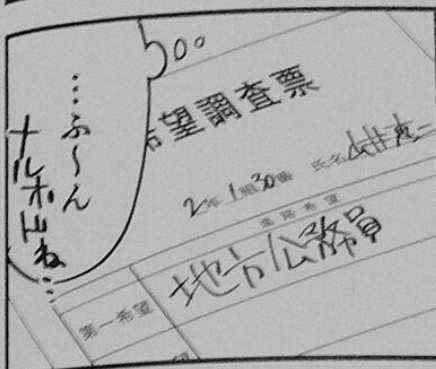 …ふ〜ん
ナルホドね…
希望調査票
2年1組30番 氏名
進路希望
第一希望
地方公務員